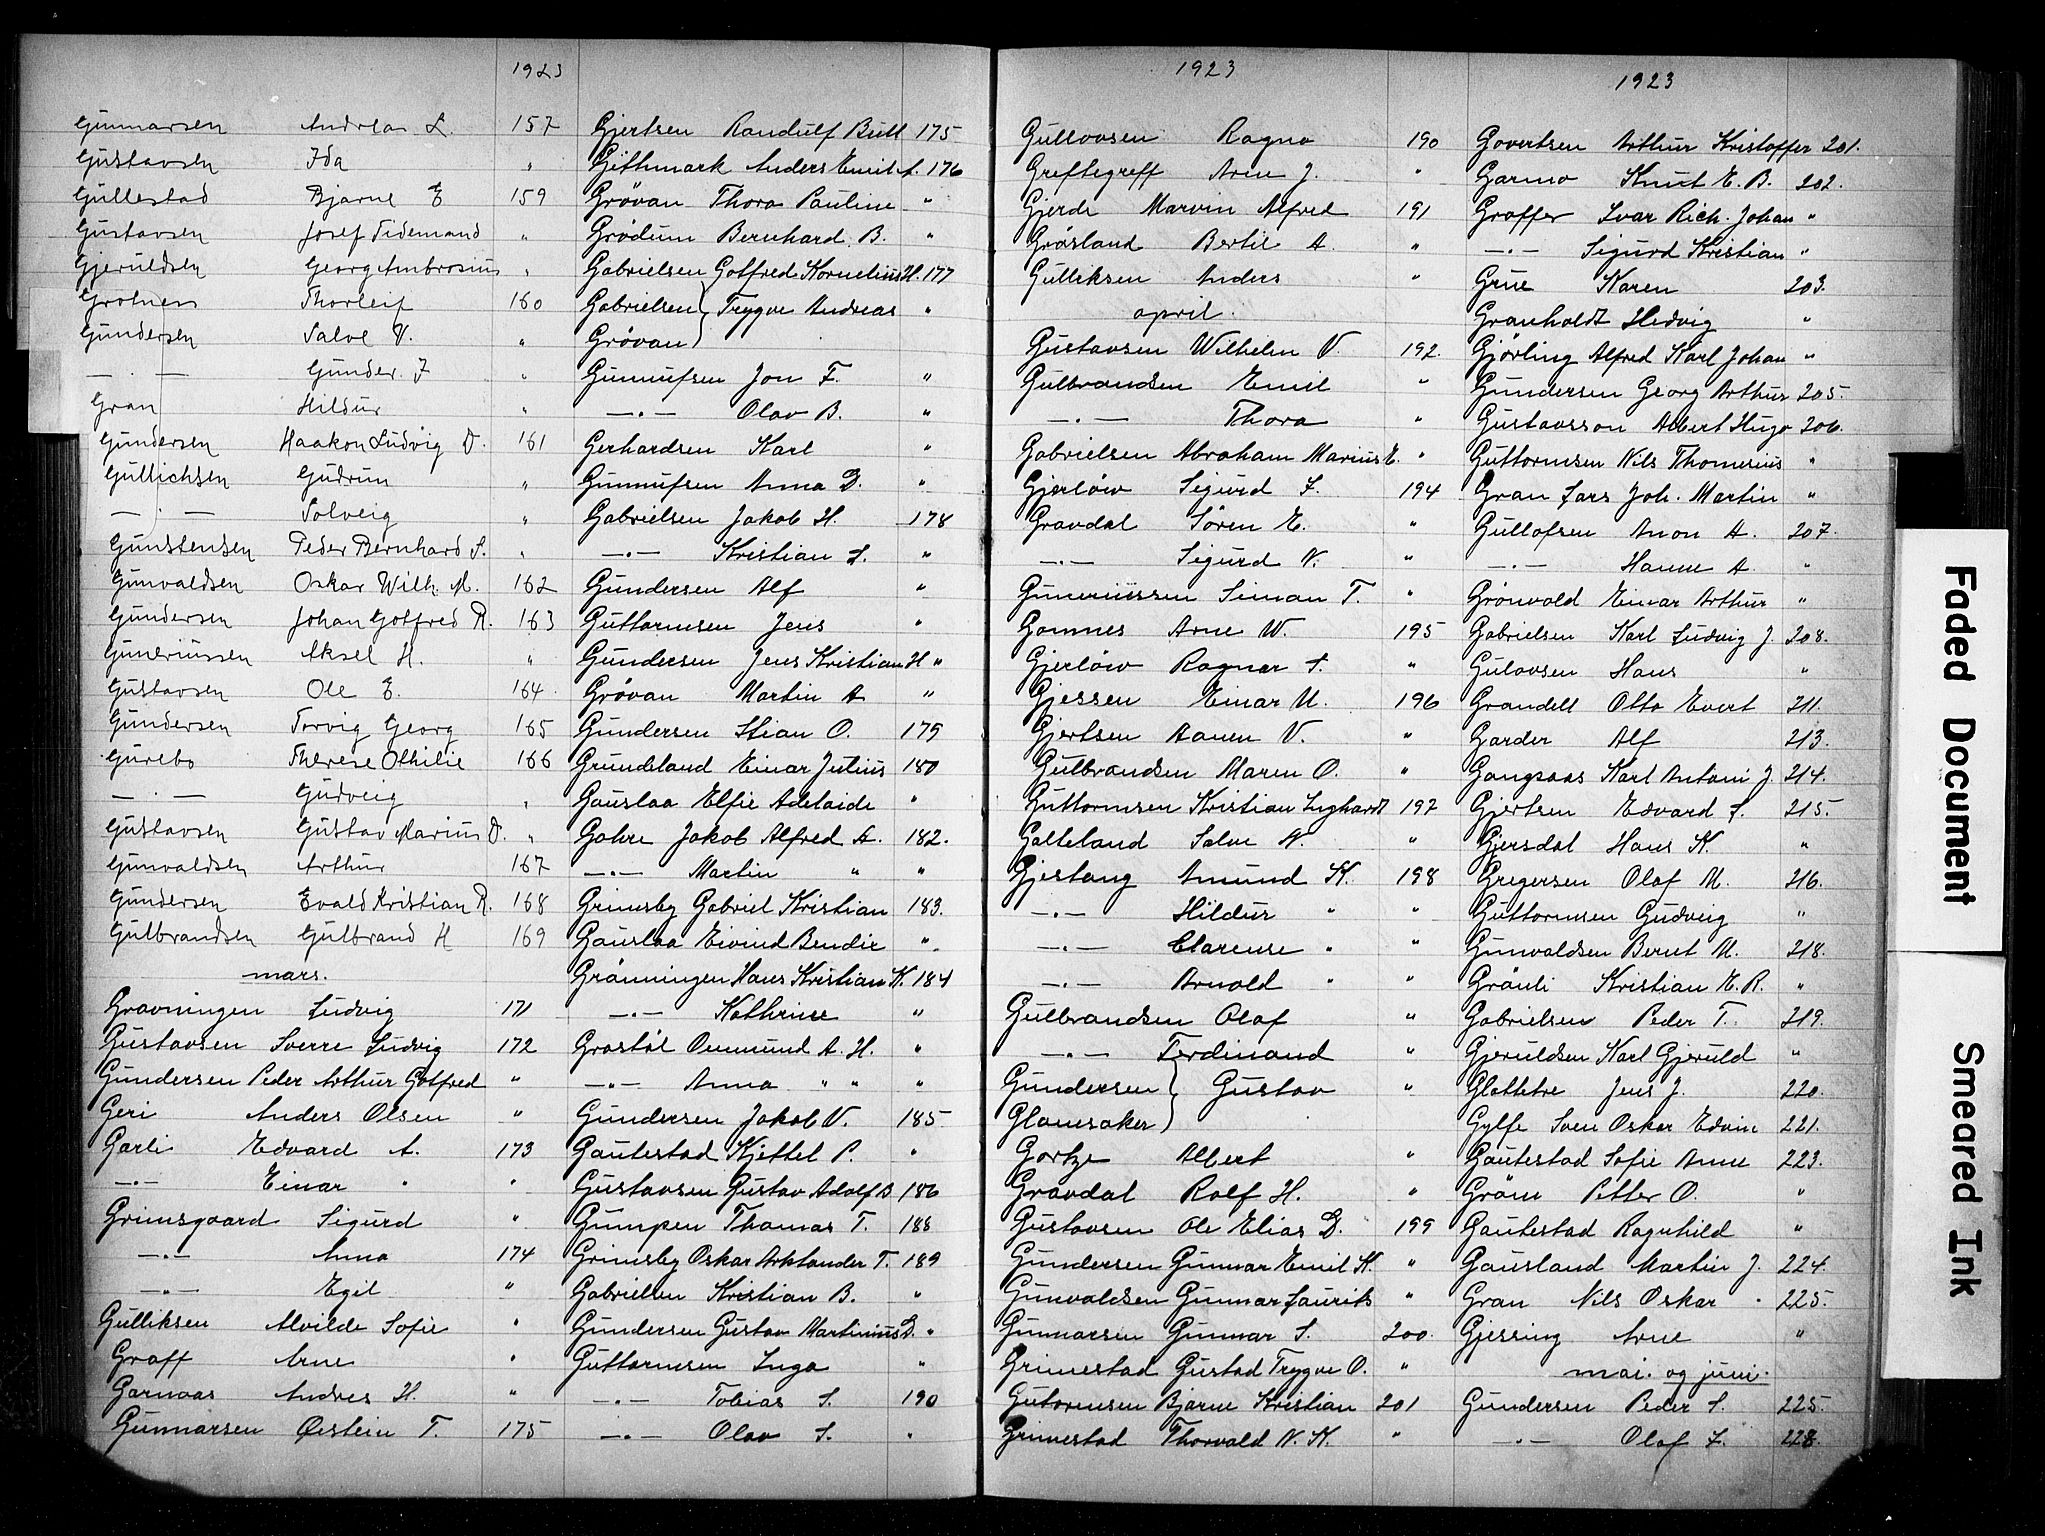 1923
Gunnarsen Andreas L. 157
Gustavsen Ida "
Gullestad Bjarne E 159
Gustavsen Josef Tidemand "
Gjeruldsen Georg Ambrosius "
Grotnes Thorleif 160
Gundersen Salve V. "
— . — Gunder. J "
Gran Hildur "
Gundersen Haakon Ludvig D. 161
Gullichsen Gudrun "
— . — Solveig "
Gunstensen Peder Bernhard S. "
Gunvaldsen Oskar Wilh. M. 162
Gundersen Johan Gotfred R. 163
Guneriussen Aksel H. "
Gustavsen Ole E. 164
Gundersen Torvig Georg 165
Gurebo Therese Othilie 166
— . — Gudveig "
Gustavsen Gustav Marius D. "
Gunvaldsen Arthur 167
Gundersen Evald Kristian R. 168
Gulbrandsen Gulbrand H 169
mars.
Gravningen Ludvig 171
Gustavsen Sverre Ludvig 172
Gundersen Peder Arthur Gotfred "
Geri Anders Olsen "
Garli Edvard A. 173
— " — Einar " "
Grimsgaard Sigurd "
— " — Anna 174
— " — Egil "
Gulliksen Alvilde Sofie "
Graff Arne "
Garnaas Andres H. "
Gunnarsen Øistein T. 175
Gjertsen Randulf Bull 175
Githmark Anders Emil A. 176
Grövan Thora Pauline "
Grödum Bernhard B. "
Gabrielsen Gotfred Kornelius H. 177
Gabrielsen } Trygve Andreas "
Grövan }
Gunnufsen Jon F. "
— " — Olav B. "
Gerhardsen Karl "
Gunnufsen Anna D. "
Gabrielsen Jakob H. 178
— " — Kristian S. "
Gundersen Alf "
Guttormsen Jens "
Gundersen Jens Kristian H "
Grövan Martin A "
Gundersen Stian O. 179
Grundeland Einar Julius 180
Gauslaa Elfie Adelaide "
Gohre Jakob Alfred A. 182.
— " — Martin " "
Grimsby Gabriel Kristian 183.
Gauslaa Eivind Bendix "
Grönningen Hans Kristian K. 184
— " — Kathrine "
Grostöl Ommund A. H. "
— " — Anna " " "
Gundersen Jakob V. 185
Gautestad Kjettel P. "
Gustavsen Gustav Adolf B 186
Gumpen Thomas T. 188
Grimsby Oskar Arktander T. 189
Gabrielsen Kristian B. "
Gundersen Gustav Martinius D. "
Guttormsen Inga "
— " — Tobias S. 190
— " — Olav S. "
1923
Gullovsen Ragna 190
Greftegreff Arne J. "
Gjerde Marvin Alfred 191
Gråsland Bertil A. "
Gulliksen Anders "
april.
Gustavsen Wilhelm V. 192.
Gulbrandsen Emil "
— " — Thora "
Gabrielsen Abraham Marius E. "
Gjerløw Sigurd F. 194
Gravdal Søren E. "
— " — Sigurd N. "
Guneriussen Siman T. "
Gomnes Arne W. 195
Gjerløw Ragnar S. "
Gjessen Einar M. 196
Gjertsen Aanen V. "
Gulbrandsen Maren O. "
Guttormsen Kristian Inghardt 197
Galteland Salve N. "
Gjestang Amund K. 198
— " — Hildur " "
— " — Clarense " "
— " — Arnold " "
Gulbrandsen Olaf "
— " — Ferdinand "
Gundersen } Gustav "
Glomsaker }
Gortze Albert "
Gravdal Rolf H. "
Gustavsen Ole Elias D. 199
Gundersen Gunnar Emil K. "
Gunvaldsen Gunnar Laurits "
Gunnarsen Gunnar S. 200.
Grimestad Gustad Trygve O. "
Gutormsen Bjarne Kristian 201
Grimestad Thorvald N. K. "
1923
Govertsen Arthur Kristoffer 201.
Garmo Knut E. B. 202.
Graffer Ivar Rich. Johan "
— " — Sigurd Kristian "
Grue Karen 203.
Granholdt Hedvig "
Gjørling Alfred Karl Johan "
Gundersen Georg Arthur 205.
Gustavsson Albert Hugo 206.
Guttormsen Nils Thomerius "
Gran Lars Joh. Martin "
Gullofsen Anon A. 207.
— " — Hanne A. "
Grönvold Einar Arthur "
Gabrielsen Karl Ludvig J 208.
Gulovsen Hans "
Grandell Otto Evert 211.
Garder Alf 213.
Gangsaas Karl Antoni J 214.
Gjertsen Edvard S. 215.
Gjersdal Hans K. "
Gregersen Olaf M. 216.
Guttormsen Gudveig "
Gunvaldsen Bernt M. 218.
Grönli Kristian E. R. "
Gabrielsen Peder T. 219.
Gjeruldsen Karl Gjeruld "
Glattetre Jens J. 220.
Gylfe Sven Oskar Edvin 221.
Gautestad Sofie Anne 223.
Gröm Petter O. "
Gautestad Ragnhild "
Gausland Martin J. 224.
Gran Nils Oskar 225.
Gjessing Arne "
mai. og juni.
Gundersen Peder S. 225.
— " — Olaf F. 228.
Faded Document
Smeared Ink